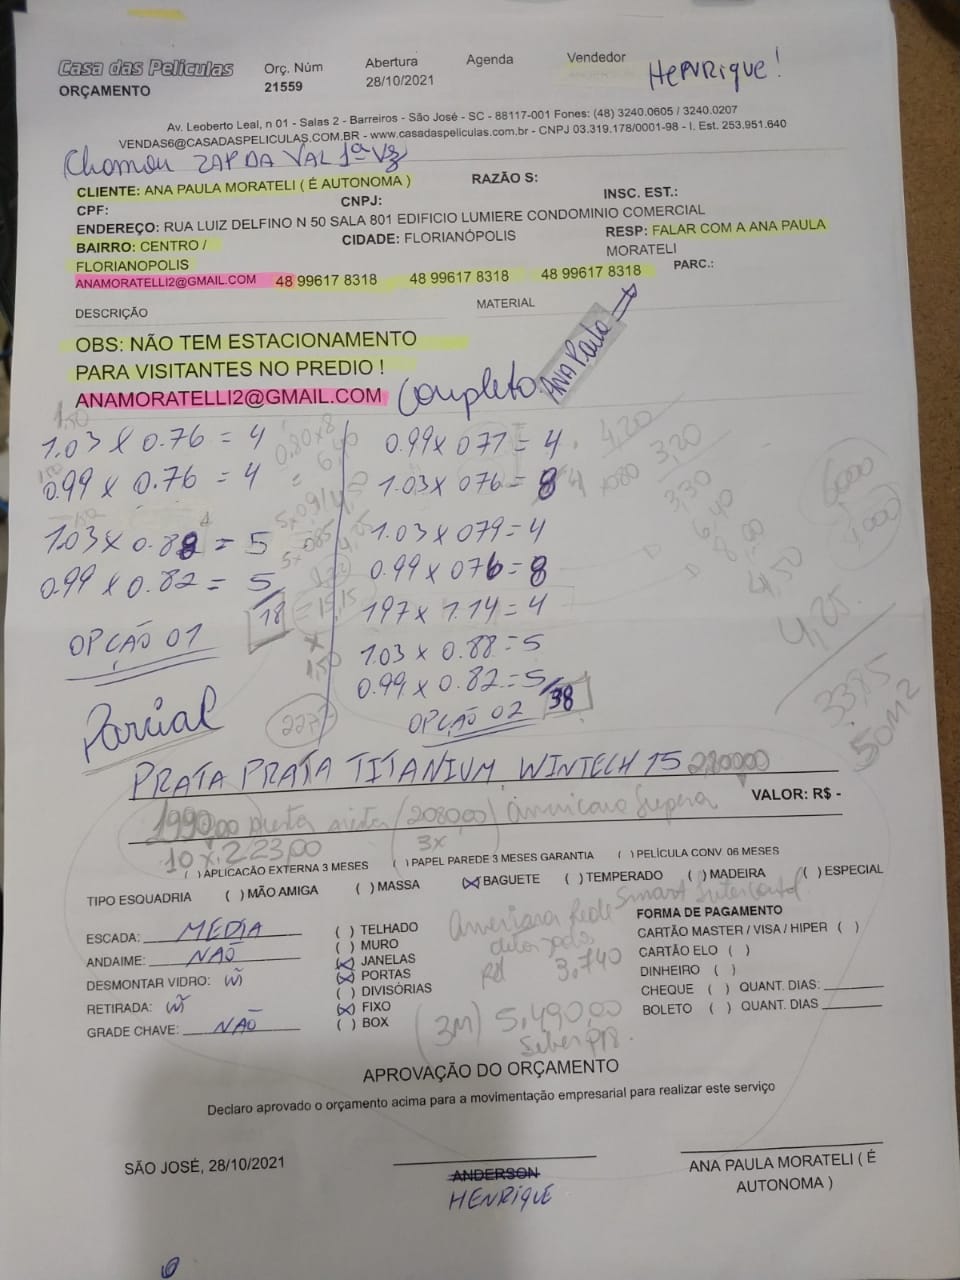 Casa das Películas
ORÇAMENTO
Orç. Núm
21559
Abertura
28/10/2021
Agenda
Vendedor
HENRIQUE!
Av. Leoberto Leal, n 01 - Salas 2 - Barreiros - São José - SC - 88117-001 Fones: (48) 3240.0605 / 3240.0207
VENDAS6@CASADASPELICULAS.COM.BR - www.casadaspeliculas.com.br - CNPJ 03.319.178/0001-98 - I. Est. 253.951.640
Chamou ZAP DA VAL 1ª Vz
CLIENTE: ANA PAULA MORATELI ( É AUTONOMA )
RAZÃO S:
CPF:
CNPJ:
INSC. EST.:
ENDEREÇO: RUA LUIZ DELFINO N 50 SALA 801 EDIFICIO LUMIERE CONDOMINIO COMERCIAL
BAIRRO: CENTRO /
FLORIANOPOLIS
CIDADE: FLORIANÓPOLIS
RESP: FALAR COM A ANA PAULA
MORATELI
ANAMORATELLI2@GMAIL.COM 48 99617 8318 48 99617 8318 48 99617 8318
PARC.:
DESCRIÇÃO
MATERIAL
OBS: NÃO TEM ESTACIONAMENTO
PARA VISITANTES NO PREDIO !
ANAMORATELLI2@GMAIL.COM
Completo
ANA Paula
1.03 X 0.76 = 4
0.99 X 0.76 = 4
1.03 X 0.88 = 5
0.99 X 0.82 = 5
18
OPÇÃO 01
Parcial
0.80x8
= 6,40
0.99 x 077 = 4
1.03 x 076 = 8
1.03 x 079 = 4
0.99 x 076 = 8
197 x 1.14 = 4
1.03 x 0.88 = 5
0.99 x 0.82 = 5
38
OPÇÃO 02
4,20
3,20
3,30
6,40
8,00
4,50
4,25
3385
50m2
6000
PRATA PRATA TITANIUM WINTECH 15
VALOR: R$ -
1990,00
(2080,00)
10 x 223,00
3x
( ) APLICACÃO EXTERNA 3 MESES
( ) PAPEL PAREDE 3 MESES GARANTIA
( ) PELÍCULA CONV. 06 MESES
TIPO ESQUADRIA
( ) MÃO AMIGA
( ) MASSA
(X) BAGUETE
( ) TEMPERADO
( ) MADEIRA
( ) ESPECIAL
ESCADA: MEDIA
ANDAIME: NAÕ
DESMONTAR VIDRO: Ñ
RETIRADA: Ñ
GRADE CHAVE: NÃO
( ) TELHADO
( ) MURO
(X) JANELAS
(X) PORTAS
( ) DIVISÓRIAS
(X) FIXO
( ) BOX
3,740
(3M) 5,490,00
FORMA DE PAGAMENTO
CARTÃO MASTER / VISA / HIPER ( )
CARTÃO ELO ( )
DINHEIRO ( )
CHEQUE ( ) QUANT. DIAS:
BOLETO ( ) QUANT. DIAS
APROVAÇÃO DO ORÇAMENTO
Declaro aprovado o orçamento acima para a movimentação empresarial para realizar este serviço
SÃO JOSÉ, 28/10/2021
ANDERSON
HENRIQUE
ANA PAULA MORATELI ( É
AUTONOMA )